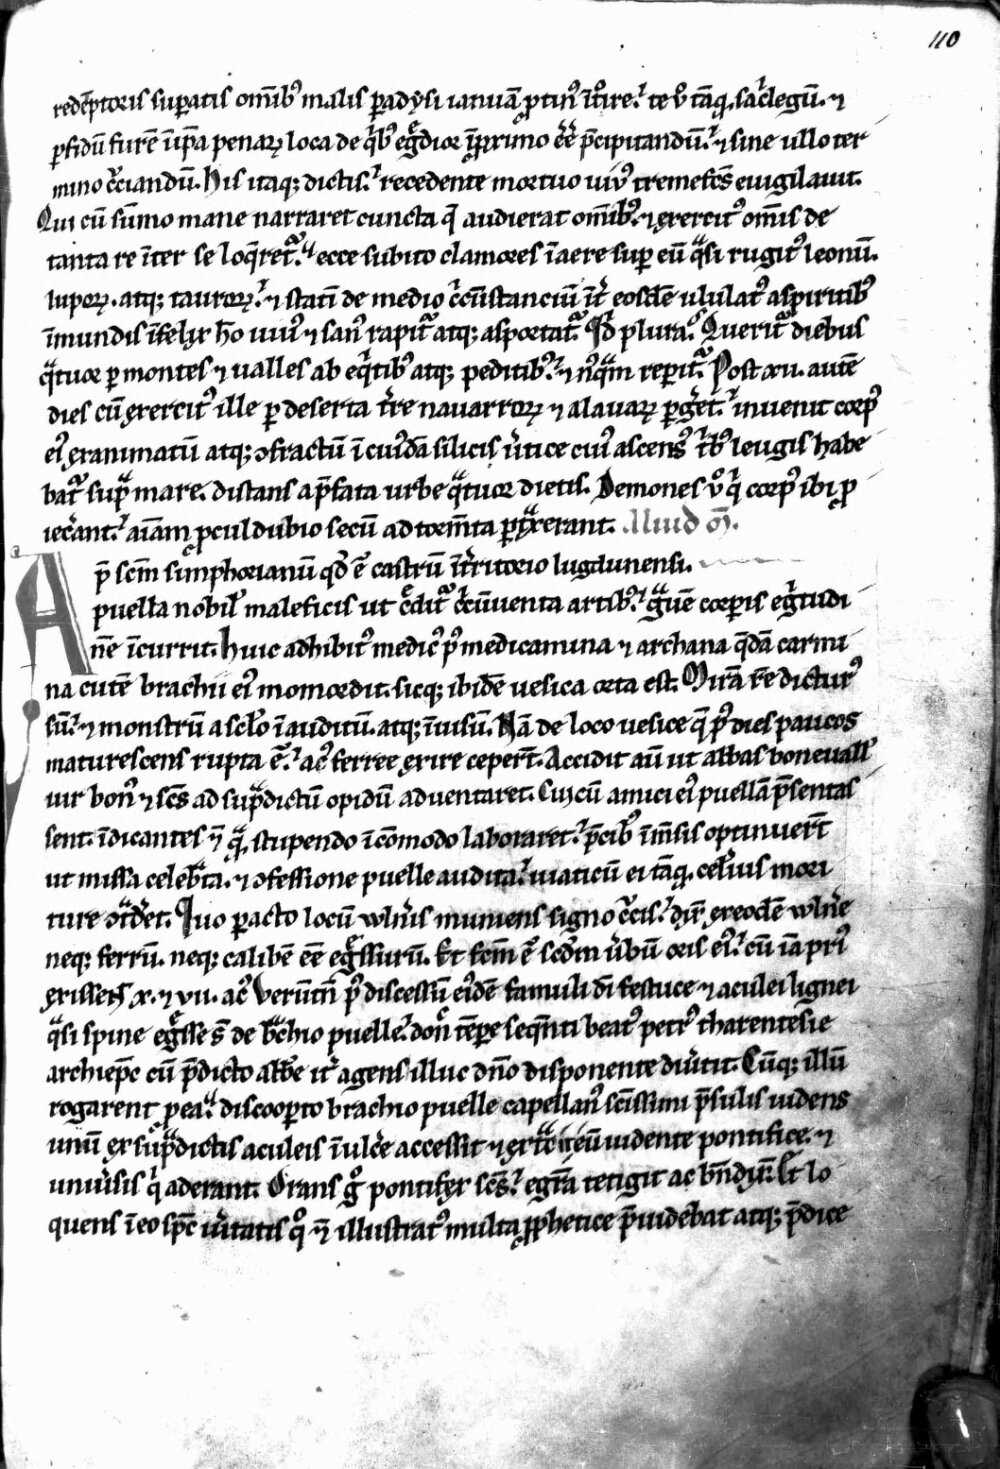 110
redēptoris supatis om̄ibꝰ malis padysi ianuā ptinꝰ ītͥre. te ͦv tāq̨ sac̄legū. ⁊
pfidū furē ūpa penaꝝ loca de qͥbꝰ eg̊dior īp̱ximo ēē p̄cipitandū. ⁊ sine ullo ter
mino cͨciandū. his itaq; dictis. recedente mortuo uiuꝰ tremefcs̄ euigilauit.
Qui cū sūmo mane narraret cuncta q̄ audierat om̄ibꝰ. ⁊ exercitꝰ om̄is de
tanta re īter se loq̄retᷓ. ecce subito clamores ī aere sup eū qͣsi rugitꝰ leonū.
lupoꝝ. atq; tauroꝝ. ⁊ statī de medio cͥcūstanciū īt̄ eosdē ululatꝰ a spiritibꝰ
īmundis īfelix hō uiuꝰ ⁊ sanꝰ rapitᷓ atq; asportatᷓ. Qͥd plura. Queritᷓ diebus
qͣtuor p montes ⁊ ualles ab eqͥtibꝰ atq; peditibꝰ. ⁊ nꝰqͣm reperitᷓ. Post xii. autē
dies cū exercitꝰ ille p deserta tr̄re nauarroꝝ ⁊ alauaꝝ pg̊et. inuenit corpꝰ
eiꝰ exanimatū atq; ɔfractū ī cuiꝰdā silicis ūtice cuiꝰ ascensꝰ tͥbꝰ leugis habe
batᷓ supͣ mare. distans a p̄fata urbe qͣtuor dietis. Demones ͦv qͥ corpꝰ ibi p̱
iec̄ant. aīam p̱culdubio secū ad torm̄ta pt̄xerant.
Ap̄ sc̄m simphorianū qd̄ ē castrū ī t̄ritorio lugdunensi.
puella nobilꝰ maleficis ut c̄ditᷓ cͥcūuenta artibꝰ. gͣuē corpis eg̊tudi
nē īcurrit. huic adhibitꝰ medicꝰ pꝰ medicamina ⁊ archana q̄dā carmi
na cutē brachii eiꝰ momordit. sicq; ibidē uesica orta est. Mirā rē dicturꝰ
sū. ⁊ monstrū a sclo īauditū. atq; īuisū. Nā de loco uesice q̄ pꝰ dies paucos
maturescens rupta ē. acꝰ ferree exire ceper̄t. Accidit aū ut abbas boneuallꝰ
uir bonꝰ ⁊ scs̄ ad supͣdictū opidū aduentaret. Cui cū amici eiꝰ puellā p̄sentas
sent. īdicantes ⁊ qͣ stupendo īcōmodo laboraret. p̄cibꝰ īm̄sis optinuer̄t
ut missa celebͣta. ⁊ ɔfessione puelle audita. uiaticū ei tāq̨ celͥius mori
ture t̄deret. Quo pacto locū wln̄is muniens signo cͨcis. dix̄ ex eodē wln̄e
neq; ferrū. neq; calibē ēē eg̊ssurū. Et fcm̄ ē scd̄m ūbū oris eiꝰ. cū iā priꝰ
exissent x. ⁊ vii. acꝰ verūtn̄ pꝰ discessū eiꝰdē famuli dī festuce ⁊ aculei lignei
qͣsi spine eg̊sse s̄ de bͣchio puelle. don̄ tēpe seq̄nti beatꝰ petrꝰ tharentesie
archiepc̄ cū p̄dicto abbē itͥ agens illuc dn̄o disponente diūtit. Cūq; illū
rogarent p̱ ea. discoopto brachio puelle capellanꝰ sc̄issimi p̄sulis uidens
unū ex supͣdictis aculeis ī ulc̄e accessit ⁊ ext̄x̄ eū uidente pontifice. ⁊
uniūsis qͥ aderant. Orans gͦ pontifex scs̄. eg̊tā tetigit ac bn̄dix̄. Et lo
quens ī eo spc̄ ūitatis qͦ ⁊ illustratꝰ multa p̱phetice p̄uidebat atq; p̄dice